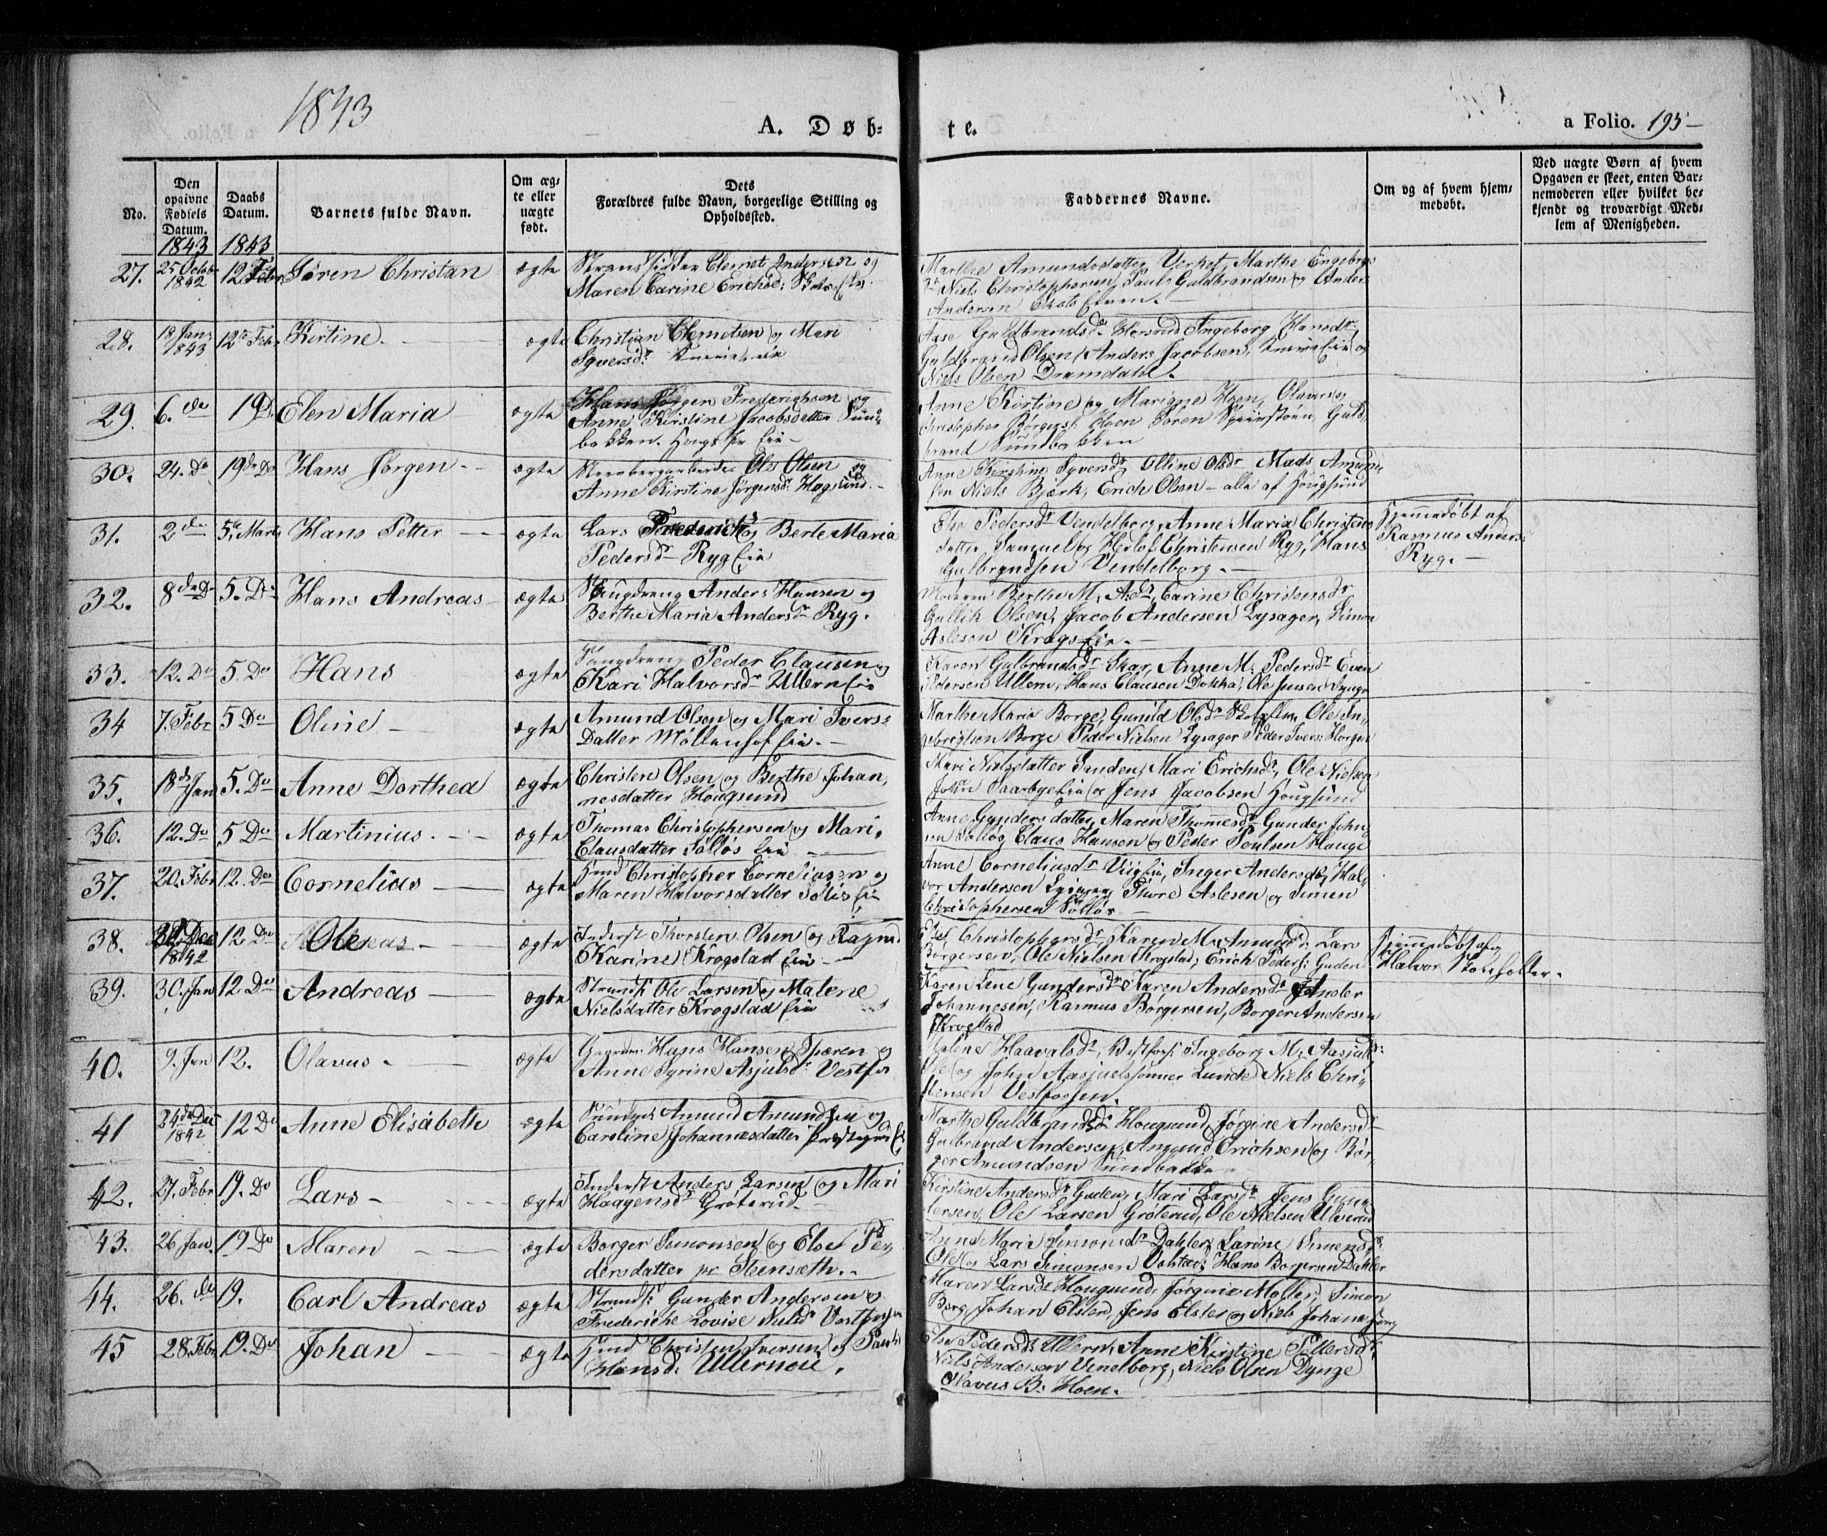 1843
A. Døb-
te.
a Folio. 195
No.
Den opgivne Fødsels Datum.
Daabs Datum.
Barnets fulde Navn.
Om ægte eller uægte født.
Dets Forældres fulde Navn, borgerlige Stilling og Opholdssted.
Faddernes Navne.
Om og af hvem hjemmedøbt.
Ved uægte Børn af hvem Opgaven er skeet, enten Barnemoderen eller hvilket bekjendt og troværdigt Medlem af Menigheden.
1843 1843
27. 25 Octob 1842 12 Febr Søren Christian ægte Strandsidder Clemet Andersen og
Maren Carine Erichsd.
Marthe Amundsdatter Verket, Marthe Engebrgs
Niels Christophersen, Paul Guldbrandsen og Anders
Andersen
28. 18 Jan 1843 12te Febr Kirtine. ægte Christian Clemetsen og Mari
Syversdr
Aase Guldbrandsdr Horsrud Ingeborg Hansdr
Guldbrand Olsen, Anders Jacobsen, og
Niels Olsen Dramdahl.
29. 6. do 19 Do Elen Maria ægte Hans Jørgen Frederichsen og
Anne Kirstine Jacobsdatter Sund-
bakken.
Anne Kirtine og Mariane Hoen, Olaves og
Christopher Hoen Søren Guld
brand Sundbakken
30. 24. Do 19de Do Hans Jørgen ægte Ole Olsen og
Anne Kirstine Jørgensdr Hogsund.
Anne Kirstine Syversdr, Olline Olsdr Mads Amund
sen Niels Bjørk, Erich Olsen alle af Hougsund
31. 2 do 5te Marts Hans Petter ægte Lars Frederichs og Berte Maria
Pedersdr Ryg Eie
Else Pedersdr Vendelborg, Anne Maria Christens
datter Samuel og Herlof Christensen Ryg, Hans
Gulbrandsen Vendelborg.
Hjemmedøbt af
Rasmus Anders
Ryg.
32. 8de Do 5. Do Hans Andreas ægte Anders Hansen og
Berthe Maria Andersdr Ryg.
Moderen Berthe M. Adr, Carine Christensdr
Gullik Olsen, Jacob Andersen Lysager, Simon
Aslesen Krogs Eie.
33. 12. Do 5 Do Hans ægte Peder Clausen og
Kari Halvorsdr Ullern Eie
Karen Gulbrandsdr Skar, Anne M. Pedersdr Even
Pedersen Ullern, Hans Clausen Dokka, Ole Jensen
34 7. Febr 5 Do Oline ægte Amund Olsen og Mari Ivers-
Datter Møllenhof Eie.
Marthe Maria Borge, Gunild Olsdr Ole In-
gebregtsen Borge Peder Nielsen Lysager Peder Ivers: Horgen
35. 18de Jan 5. Do Anne Dorthea ægte Christen Olsen og Berthe Johan
nesdatter Hougsund
Mari Nielsdatter Sanden, Mari Erichsdr, Ole Nielsen
John Saarbye Eie og Jens Jacobsen Hougsund
36. 12. Do 5 Do Martinius. ægte Thomas Christophersen og Mari
Clausdatter Solløs Eie
Anne Gundersdatter, Maren Thomesdr Gunder John
sen Solløs Claus Hansen og Peder Poulsen Houge
37. 20. Febr 12. Do Cornelias ægte Huusmd Christopher Corneliussen og
Maren Halvorsdatter Solløs Eie
Anne Corneliusdr Viig Eie, Inger Andersdr, Hal-
vor Andersen Thore Aslesen og Simen
Christophersen Solløs
38. Dec 1842 12 Do Ole ægte Inderst Thorsten Olsen og Ragnd
Karine Krogstad Eie
Else Christophersdr, Karen M. Amundsdr, Lars
Borgersen, Ole Nielsen Krogstad, Erich Peders: Guden
Hjemmedøbt af
Halvor
39. 30. Jan 12. Do Andreas ægte Strands: Ole Larsen og Malene
Nielsdatter Krogstad Eie
Karen Lene Gundersdr Karen Andersdr
Johannesen, Rasmus Børgersen, Borger Andersen
Krogstad
40. 9. Jan 12. Olavus ægte Hans Hansen og
Anne Syrine Asjulsdr Vestfos
Malene Haavalsdr, Ingeborg M. Aasjuls
Ole og John Aasjuelssønner Lunde, Niels Chri-
stensen Vestfossen.
41 24de Dec 1842 12 Do Anne Elisabeth ægte Amund Amundsen og
Caroline Johannesdatter
Marthe Guldbrandsdr Hougsund Jørgine Andersdr
Gulbrand Andersen, Amund Erichsen og Bør-
ger Amundsen Sundbakken
42. 27. Febr 19. Do Lars ægte Inderst Anders Larsen og Mari
Haagensdr Grøterud
Kirstine Andersdr Guden, Mari Larsdr, Jens Gun-
dersen, Ole Larsen Grøterud, Ole Nielsen Ulverud
43. 26 Jan 19 Do Maren ægte Borger Simonsen og Else Pe-
dersdatter Stensæth.
Anne Maria Simonsdr Dahler, Karine Simensdr
Ole og Lars Simonsen Hans Borgersen Dahler
44. 26. do 19. Carl Andreas ægte Strands: Gunder Andersen og
Frederiche Lovise Nielsdr Vestfossen
Maren Larsdr Hougsund, Jørgine Møller, Simon
Berg, Johan Elster, Jens Elster og Niels Johans
45 28. Febr 19. Do Johan ægte Huusmd Christen Iversen og
Hansdr Ullerneie.
Else Pedersdr Ullern, Anne Kirstine Pettersdr
Niels Andersen Venelborg, Niels Olsen Dynge
Olavus B. Hoen.